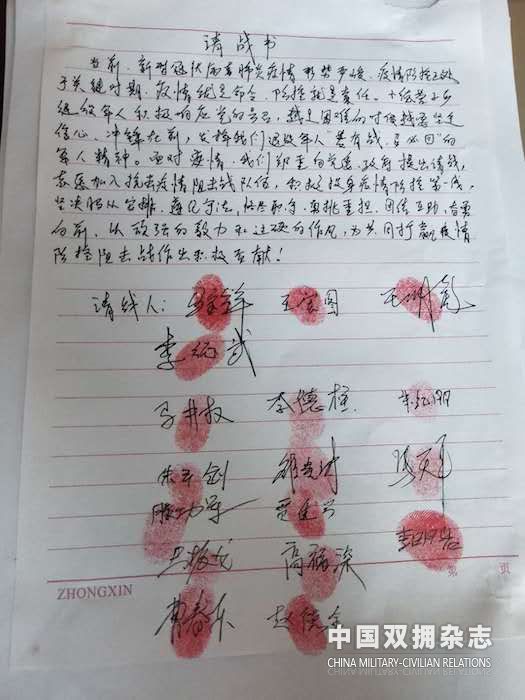 请战书
当前，新型冠状病毒肺炎疫情形势严峻，疫情防控正处
于关键时期，疫情就是命令，防控就是责任。
积极响应党的号召，越是困难的时候越要坚定
信心、冲锋在前，发挥我们退役军人“若有战，召必回”的
军人精神。面对疫情，我们郑重向党委、政府提出请战，
志愿加入抗击疫情阻击战队伍，积极投身疫情防控第一线，
坚决服从安排、遵纪守法、恪尽职守、勇挑重担、团结互助、奋勇
向前，以顽强的毅力和过硬的作风，为共同打赢疫情
防控阻击战作出积极贡献！
请战人：
李炳武
马井权 李德
朱子剑
高福深
曹春乐 赵德全
ZHONGXIN 第 页
中国双拥杂志
CHINA MILITARY-CIVILIAN RELATIONS